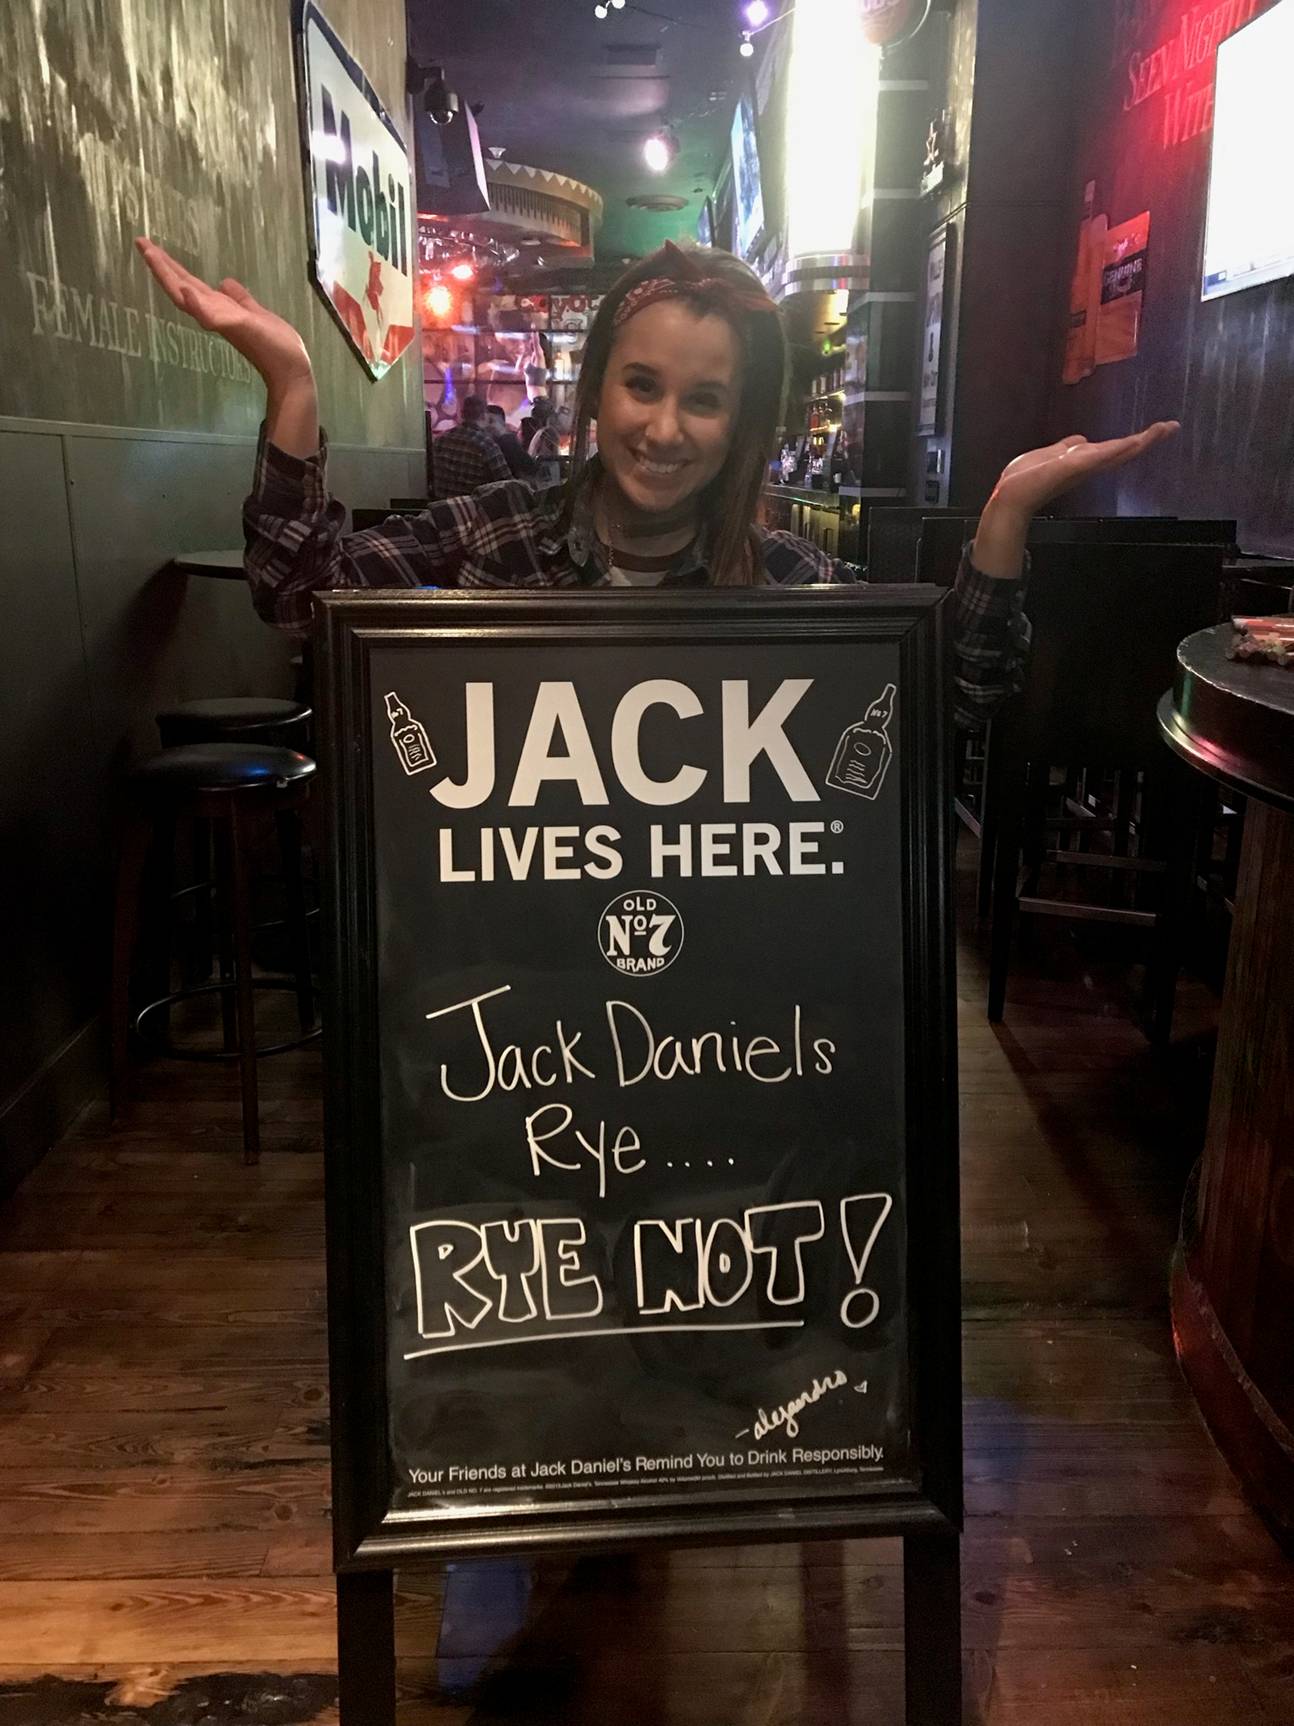 Mobil
FEMALE INSTRUCTORS
SEEN NIGHTLY
WITH
GENUINE
JACK
LIVES HERE.®
No 7
No 7
OLD
Nº7
BRAND
Jack Daniels
Rye....
RYE NOT!
-alejandro
Your Friends at Jack Daniel's Remind You to Drink Responsibly.